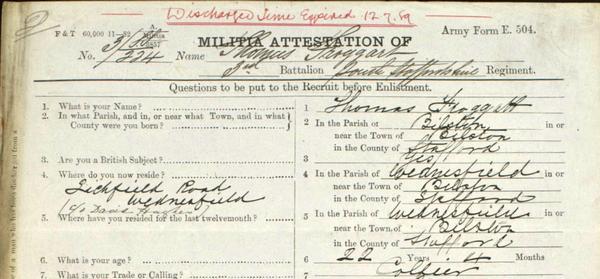 Discharged Time Expired 12.7.89
F & T 60,000 11—82
Army Form E. 504.
MILITIA ATTESTATION OF
No. 324 Name Thomas Froggatt
3rd Battalion South Staffordshire Regiment.
Questions to be put to the Recruit before Enlistment.
1. What is your Name? 1 Thomas Froggatt
2. In what Parish, and in, or near what Town, and in what County were you born? 2 In the Parish of Bilston in or
near the Town of Bilston
in the County of Stafford
3. Are you a British Subject? 3 Yes
4. Where do you now reside? 4 In the Parish of Wednesfield in or
Lichfield Road near the Town of Bilston
Wednesfield in the County of Stafford
c/o David Hughes
5. Where have you resided for the last twelvemonth? 5 In the Parish of Wednesfield in or
near the Town of Bilston
in the County of Stafford
6. What is your age? 6 22 Years 4 Months
7. What is your Trade or Calling? 7 Collier